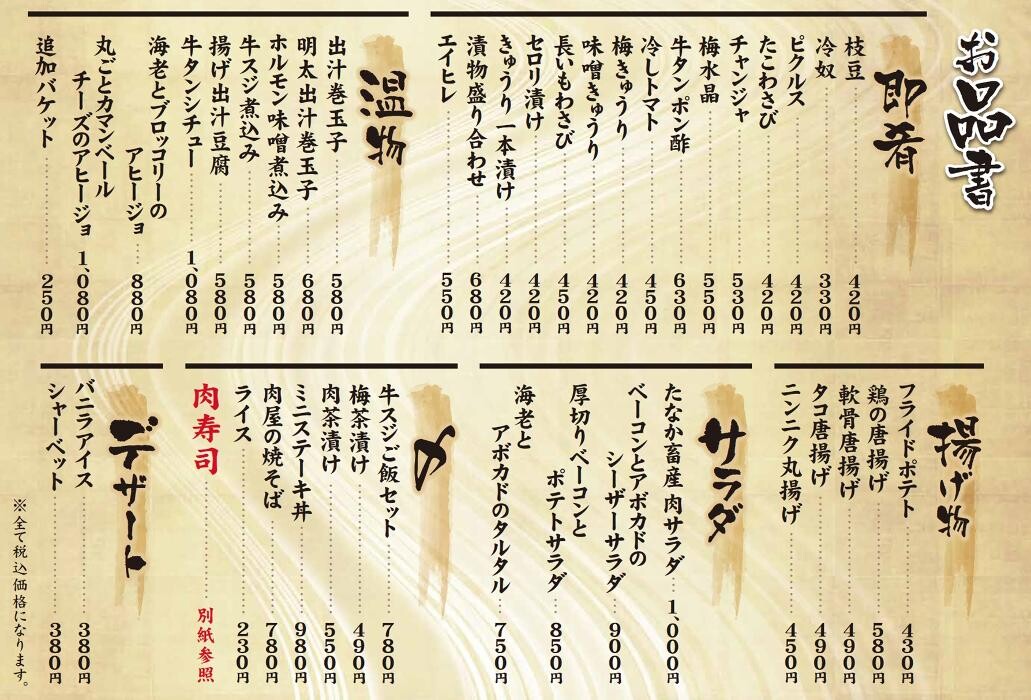 お品書
即肴
枝豆 420円
冷奴 330円
ピクルス 420円
たこわさび 420円
チャンジャ 530円
梅水晶 550円
牛タンポン酢 630円
冷しトマト 450円
梅きゅうり 420円
味噌きゅうり 420円
長いもわさび 450円
セロリ漬け 420円
きゅうり一本漬け 420円
漬物盛り合わせ 680円
エイヒレ 550円
温物
出汁巻玉子 580円
明太出汁巻玉子 680円
ホルモン味噌煮込み 580円
牛スジ煮込み 580円
揚げ出汁豆腐 580円
牛タンシチュー 1,080円
海老とブロッコリーの
アヒージョ 880円
丸ごとカマンベール
チーズのアヒージョ 1,080円
追加バケット 250円
揚げ物
フライドポテト 430円
鶏の唐揚げ 580円
軟骨唐揚げ 490円
タコ唐揚げ 490円
ニンニク丸揚げ 450円
サラダ
たなか畜産 肉サラダ 1,000円
ベーコンとアボカドの
シーザーサラダ 900円
厚切りベーコンと
ポテトサラダ 850円
海老と
アボカドのタルタル 750円
〆
牛スジご飯セット 780円
梅茶漬け 490円
肉茶漬け 550円
ミニステーキ丼 980円
肉屋の焼そば 780円
ライス 230円
肉寿司 別紙参照
デザート
バニラアイス 380円
シャーベット 380円
※全て税込価格になります。